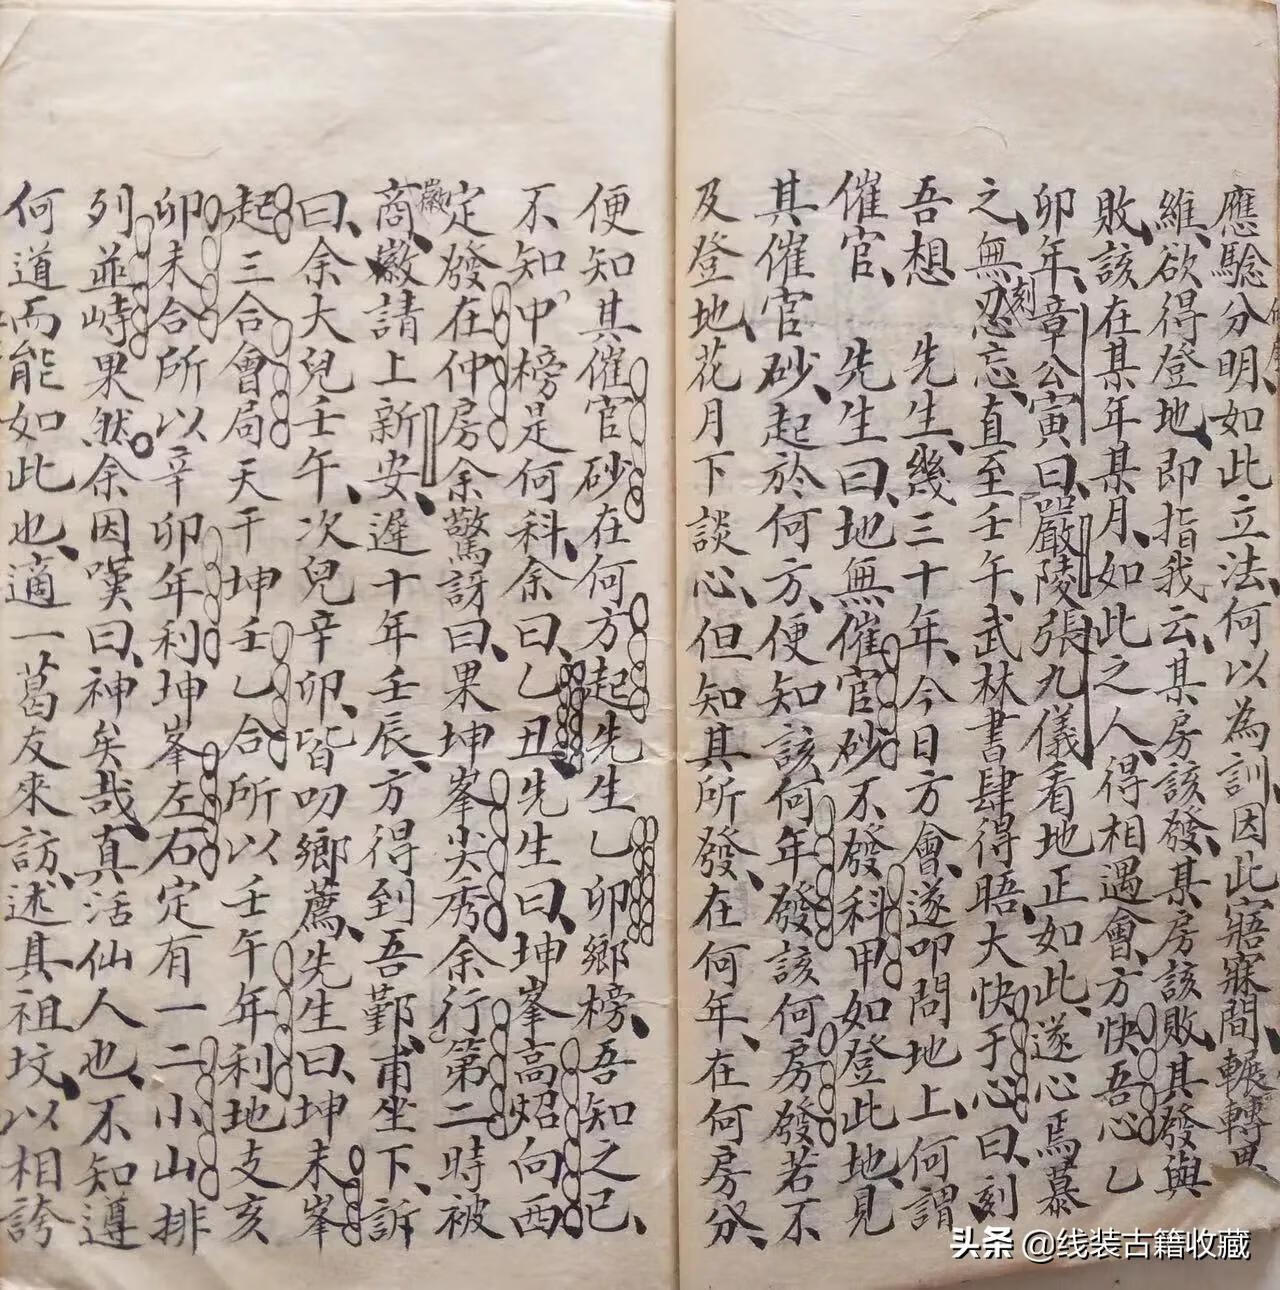 應驗分明、如此立法、何以為訓、因此寤寐間、輾轉思
維、欲得登地、即指我云、某房該發、某房該敗、其發與
敗、該在某年某月、如此之人、得相遇會、方快吾心、乙
卯年、章公寅曰、嚴陵張九儀、看地正如此、遂心焉慕
之、無刻忍忘、直至壬午、武林書肆得晤、大快于心、曰、刻
吾想 先生、幾三十年、今日方會、遂叩問地上、何謂
催官、 先生曰、地無催官砂、不發科甲、如登此地、見
其催官砂、起於何方、便知該何年發、該何房發、若不
及登地、花月下談心、但知其所發、在何年、在何房分、
便知其催官砂在何方起、先生乙卯鄉榜、吾知之已、
不知中榜是何科、余曰、乙丑、先生曰、坤峯高炤向西
定發在仲房、余驚訝曰、果坤峯尖秀、余行第二、時被
徽
商、徽請上新安、遲十年壬辰、方得到吾鄞、甫坐下、訴
曰、余大兒壬午、次兒辛卯、皆叨鄉薦、先生曰、坤未峯
起、三合會局、天干坤壬乙合、所以壬午年利、地支亥
卯未合、所以辛卯年利、坤峯左右定有一二小山排
列並峙、果然。余因嘆曰、神矣哉、真活仙人也、不知遵
何道而能如此也、適一葛友來訪、述其祖坟、以相誇
头条 @线装古籍收藏